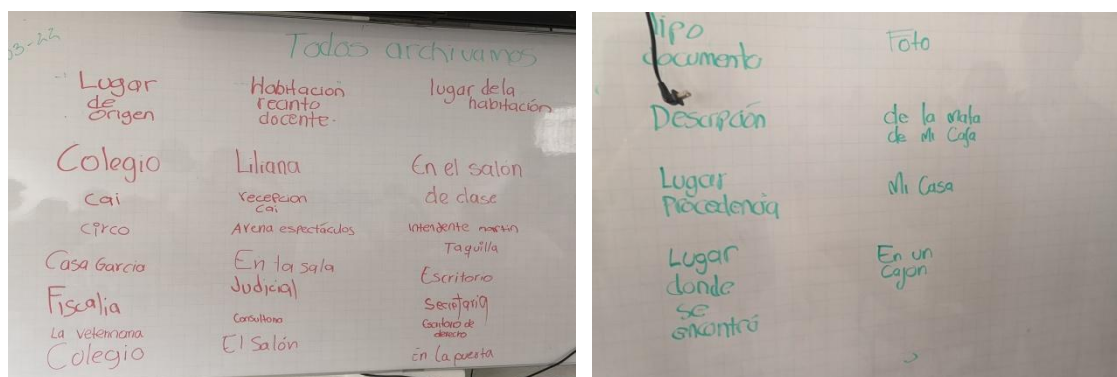 03-22
Todos archivamos
Lugar de origen
Habitacion recinto docente.
lugar de la habitación
Colegio Liliana En el salón
Cai recepcion cai de clase
Circo Arena espectáculos intendente martin
Taquilla
Casa Garcia En la sala Escritorio
Fiscalia Judicial Secretaria
La veterinaria Consultorio
Colegio El Salón En la puesta
Tipo documento Foto
Descripción de la mata de Mi Casa
Lugar Procedencia Mi Casa
Lugar donde se encontró En un Cajon